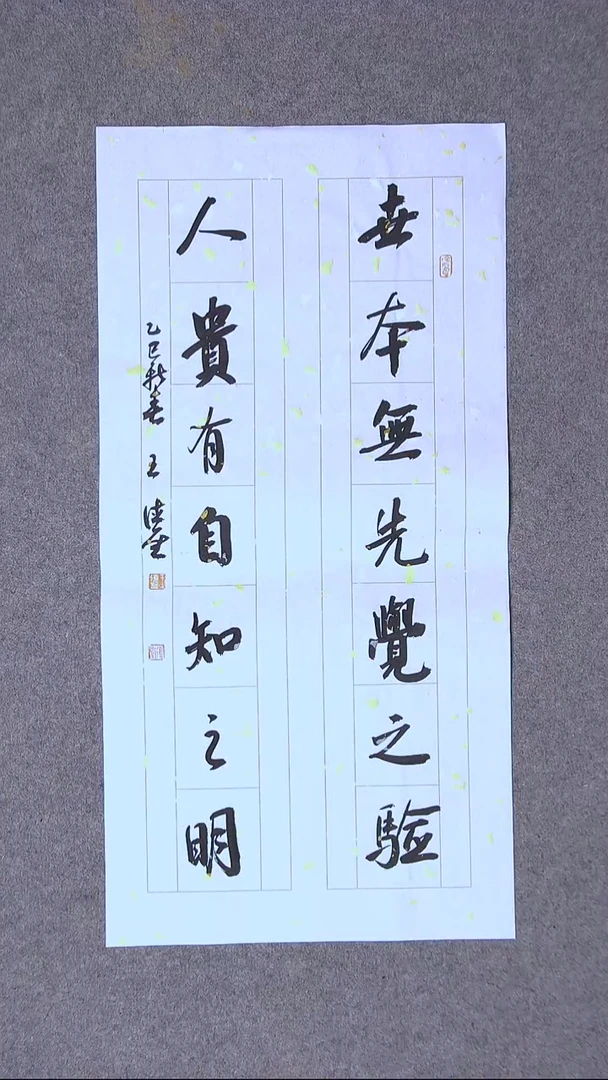 世本無先覺之驗
人貴有自知之明
乙巳新春 王